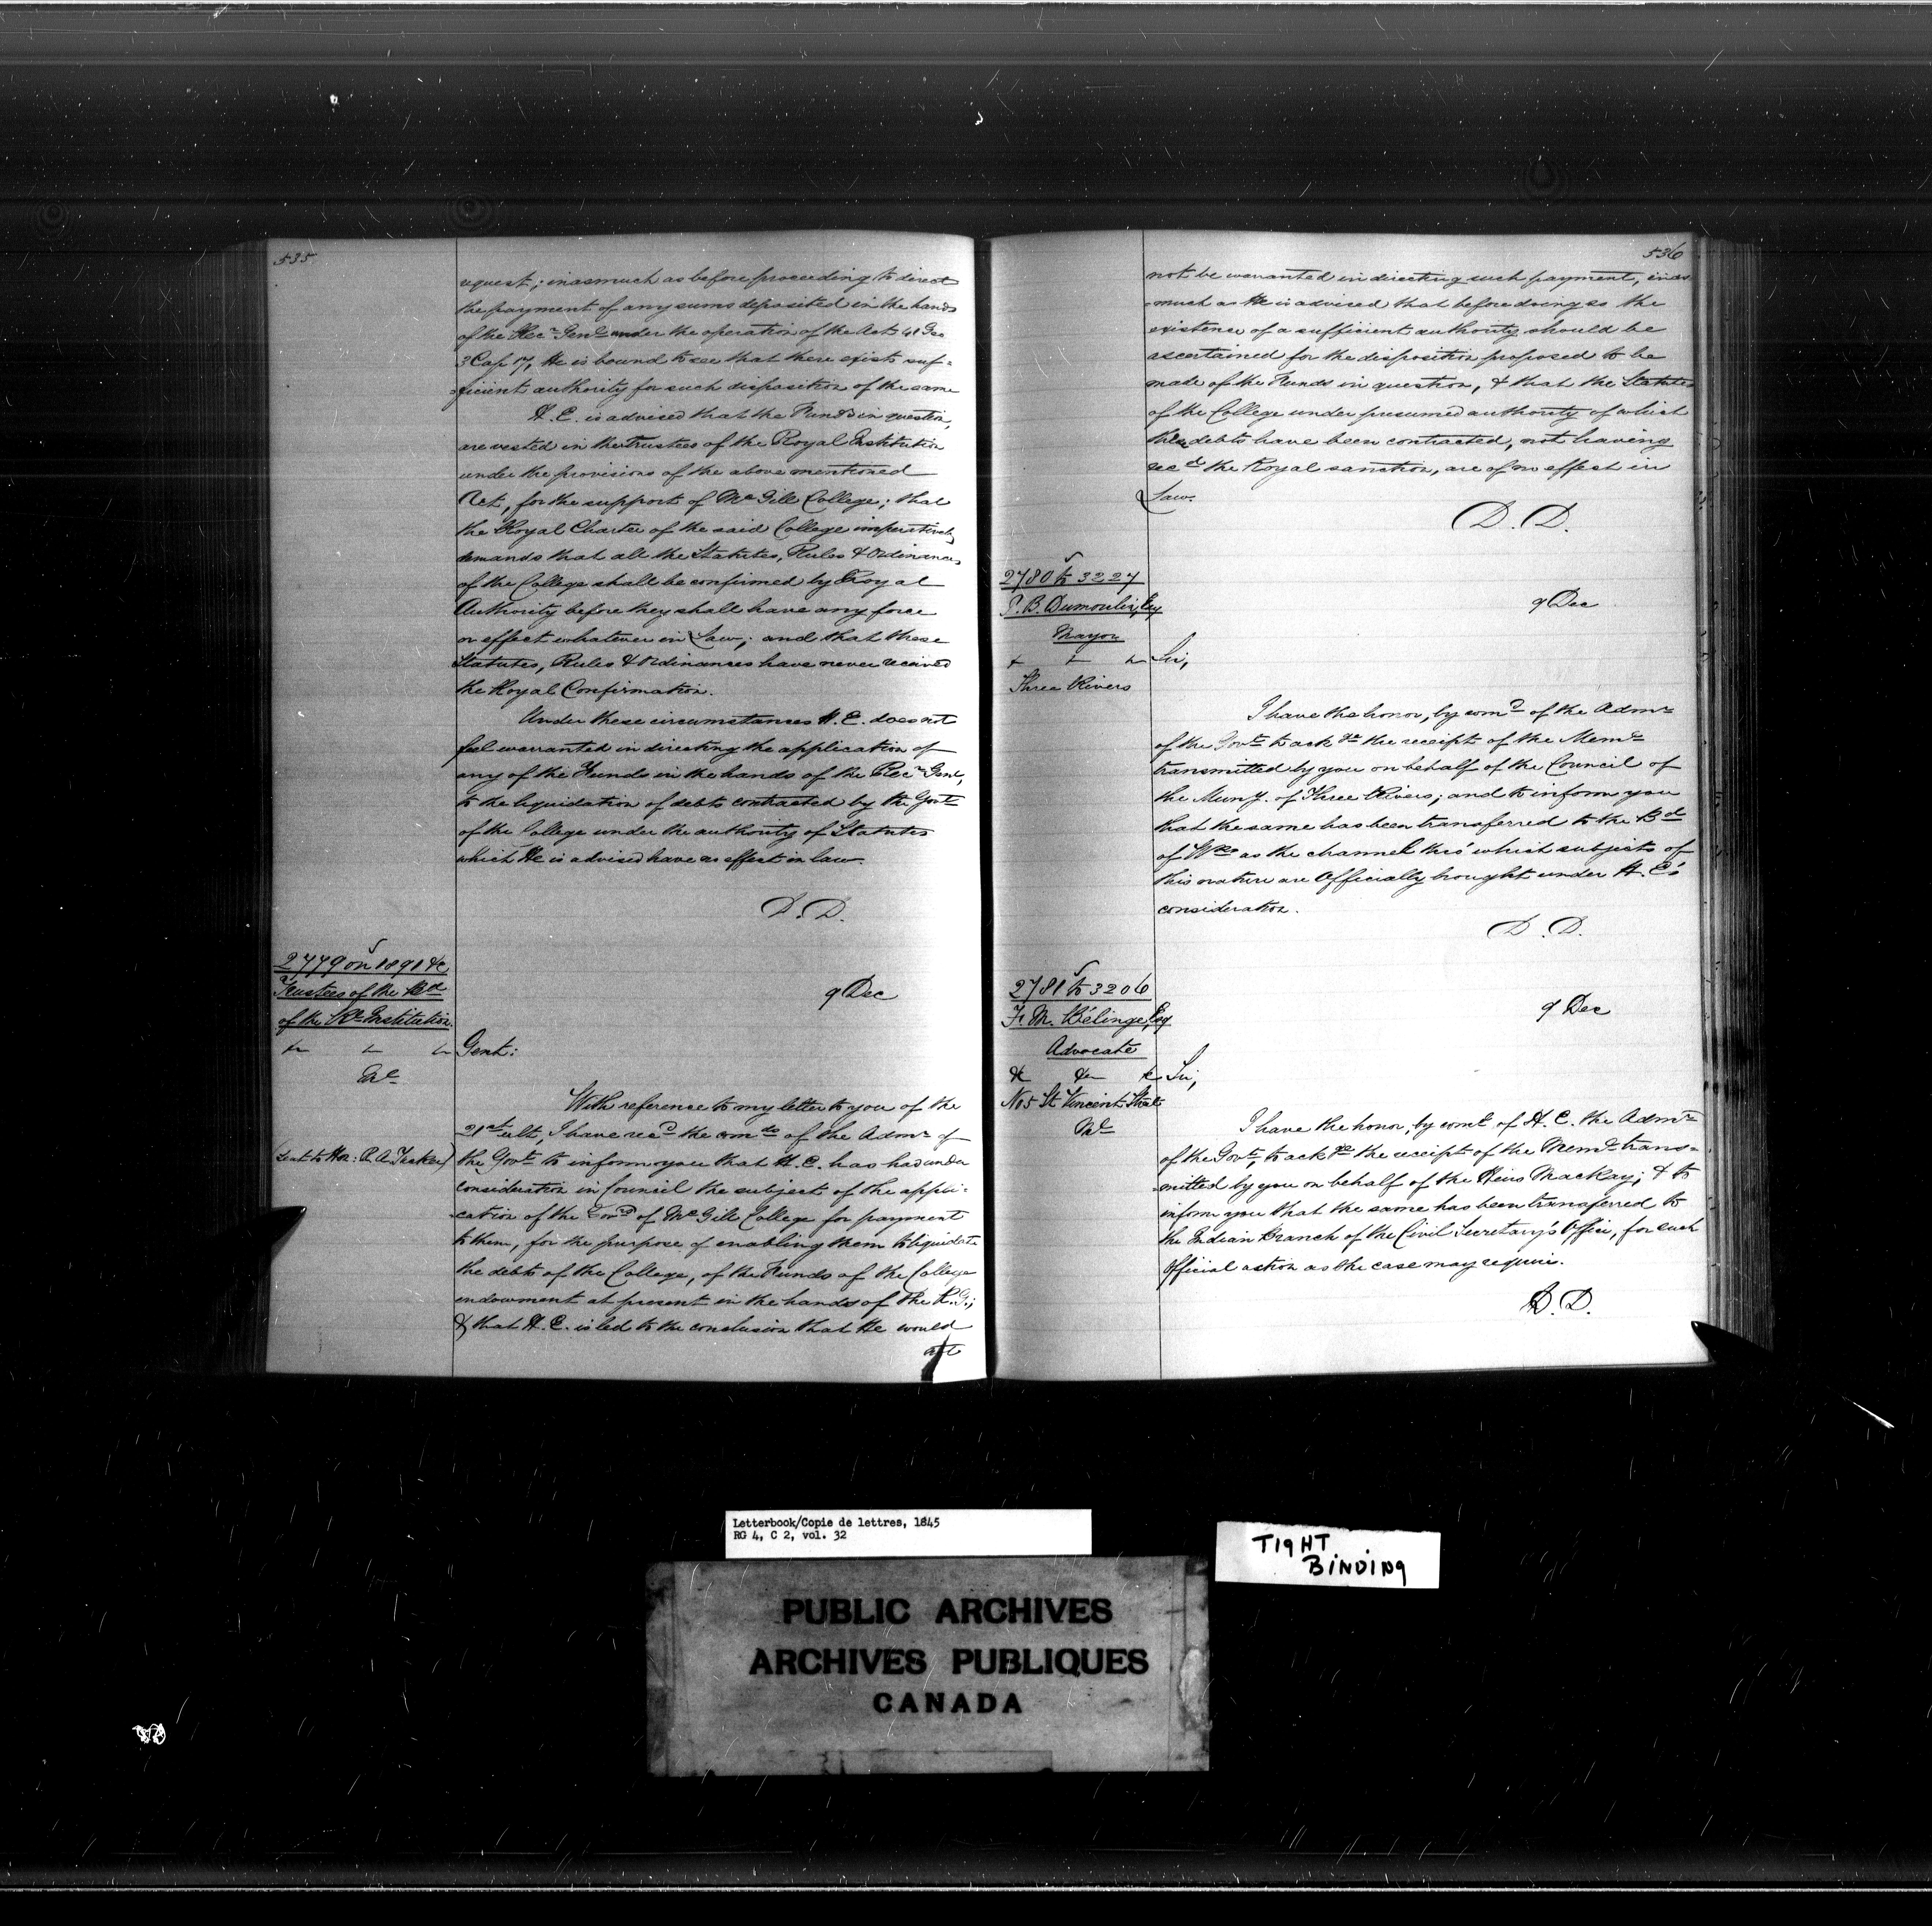 535
request; inasmuch as before proceeding to direct
the payment of any sums deposited in the hands
of the Recr Genl under the operation of the Act 41 Geo
3 Cap 17, He is bound to see that there exists suf-
-ficient authority for such disposition of the same
H. E. is advised that the Funds in question,
are vested in the Trustees of the Royal Institution
under the provisions of the above mentioned
Act, for the support of McGill College; that
the Royal Charter of the said College imperatively
demands that all the Statutes, Rules & Ordinances
of the College shall be confirmed by Royal
Authority before they shall have any force
or effect whatever in Law; and that these
Statutes, Rules & Ordinances have never received
the Royal Confirmation.
Under these circumstances H. E. does not
feel warranted in directing the application of
any of the Funds in the hands of the Recr Genl,
to the liquidation of debts contracted by the Govrs
of the College under the authority of Statutes
which He is advised have no effect in law.
D. D.
2779 on 1891 &c
Trustees of the Bd
of the Rl Institution
9 Dec
Gent:
Ml
With reference to my letter to you of the
21st ult, I have recd the comds of the Admr of
(Sent to Hon: R. A. Tucker)
the Govt to inform you that H. E. has had under
consideration in Council the subject of the appli-
-cation of the Govrs of McGill College for payment
to them, for the purpose of enabling them to liquidate
the debts of the College, of the Funds of the College
endowment at present in the hands of the R. G.;
& that H. E. is led to the conclusion that He would
not
536
not be warranted in directing such payment, inas
-much as He is advised that before doing so the
existence of a sufficient authority should be
ascertained for the disposition proposed to be
made of the Funds in question, & that the Statutes
of the College under presumed authority of which
these debts have been contracted, not having
recd the Royal sanction, are of no effect in
Law.
D. D.
2780 to 3227
P. B. Dumoulin, Esq
Mayor
9 Dec
Sir,
Three Rivers
I have the honor, by comd of the Admr
of the Govt to ackge the receipt of the Meml
transmitted by you on behalf of the Council of
the Muny. of Three Rivers; and to inform you
that the same has been transferred to the Bd
of Wks as the channel thro' which subjects of
this nature are Officially brought under H. E.'s
consideration.
D. D.
2781 to 3206
Fr. M. Bélinge, Esq
Advocate
9 Dec
&c &c &c
Sir,
No 5 St Vincent Street
Ml
I have the honor, by comd of H. E. the Admr
of the Govt, to ackge the receipt of the Meml trans-
-mitted by you on behalf of the Heirs MacKay; & to
inform you that the same has been transferred to
the Indian Branch of the Civil Secretary's Office, for such
Official action as the case may require.
D. D.
Letterbook/Copie de lettres, 1845
RG 4, C 2, vol. 32
TIGHT
BINDING
PUBLIC ARCHIVES
ARCHIVES PUBLIQUES
CANADA